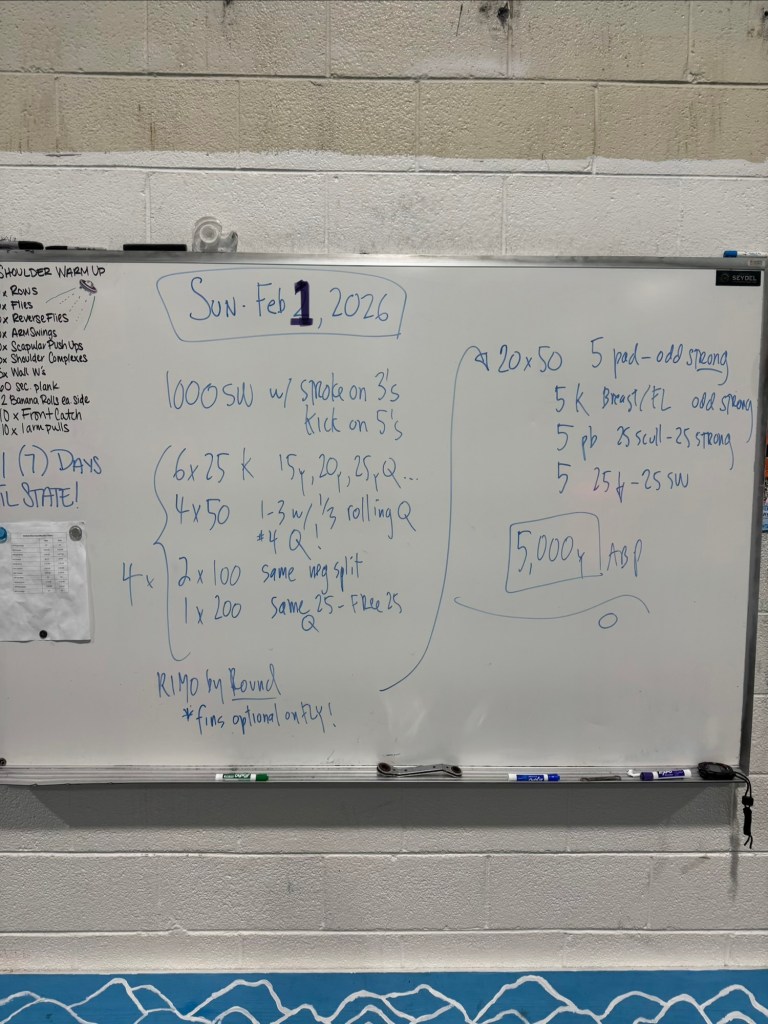 SHOULDER WARM UP
x Rows
x Flies
x Reverse Flies
x ARM Swings
x Scapular Push Ups
x Shoulder Complexes
x Wall W's
60 sec. plank
2 Banana Rolls ea. side
10 x Front Catch
10 x 1 arm pulls
(7) DAYS
STATE!
SUN. Feb 1, 2026
1000 SW w/ stroke on 3's
Kick on 5's
4x
6x25 K 15y, 20y, 25y Q...
4x50 1-3 w/ 1/3 rolling Q
*4 Q!
2x100 same neg split
1x200 same 25 - FREE 25
Q
RIMO by Round
*fins optional on FLY!
20x50 5 pad - odd strong
5 K Breast/FL odd strong
5 pb 25 scull - 25 strong
5 25 f - 25 SW
5,000y ABP
SEYDEL
EXPO